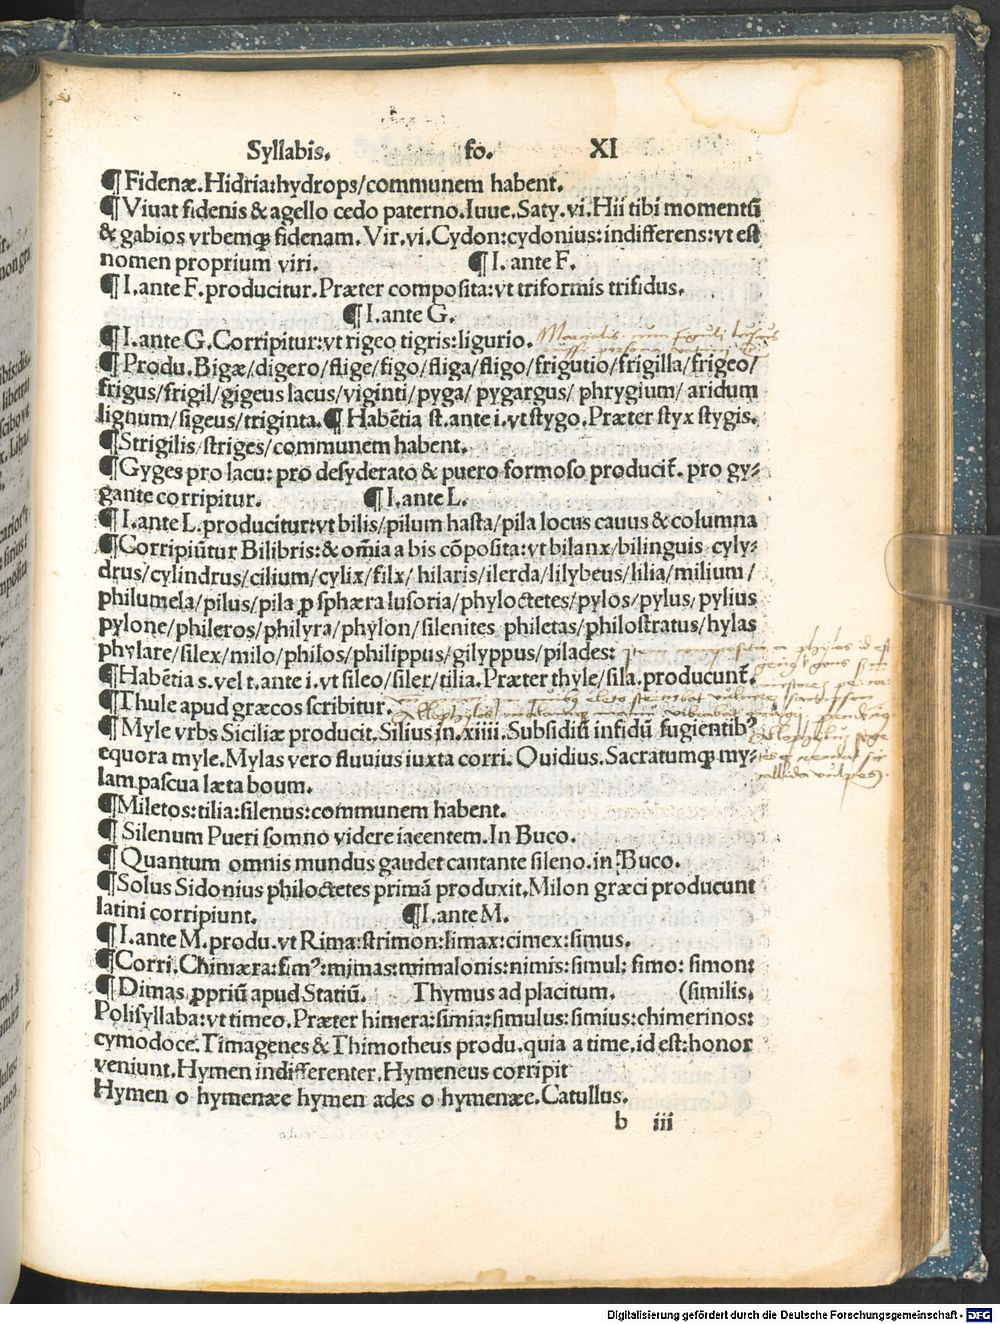 Syllabis. fo. XI
¶ Fidenæ. Hidria: hydrops/communem habent.
¶ Viuat fidenis & agello cedo paterno. Iuue. Saty. vi. Hii tibi momentū
& gabios vrbemqꝫ fidenam. Vir. vi. Cydon: cydonius: indifferens: vt est
nomen proprium viri. ¶ I. ante F.
¶ I. ante F. producitur. Præter composita: vt triformis trifidus.
¶ I. ante G.
¶ I. ante G. Corripitur: vt rigeo tigris: ligurio.
¶ Produ. Bigæ/digero/flige/figo/fliga/fligo/frigutio/frigilla/frigeo/
frigus/frigil/gigeus lacus/viginti/pyga/ pygargus/ phrygium/ aridum
lignum/sigeus/triginta. ¶ Habētia st. ante i. vt stygo. Præter styx stygis.
¶ Strigilis/striges/communem habent.
¶ Gyges pro lacu: pro desyderato & puero formoso producit̄. pro gy⸗
gante corripitur. ¶ I. ante L.
¶ I. ante L. producitur: vt bilis/pilum hasta/pila locus cauus & columna
¶ Corripiūtur Bilibris: & om̄ia a bis cōposita: vt bilanx/bilinguis cyly⸗
drus/cylindrus/cilium/cylix/filx/ hilaris/ilerda/lilybeus/lilia/milium/
philumela/pilus/pila ꝓ sphæra lusoria/phyloctetes/pylos/pylus/pylius
pylone/phileros/philyra/phylon/silenites philetas/philostratus/hylas
phylare/silex/milo/philos/philippus/gilyppus/pilades:
¶ Habētia s. vel t. ante i. vt sileo/siler/tilia. Præter thyle/sila. producunt̄.
¶ Thule apud græcos scribitur.
¶ Myle vrbs Siciliæ producit. Silius in. xiiii. Subsidiū infidū fugientibꝰ
equora myle. Mylas vero fluuius iuxta corri. Ouidius. Sacratumqꝫ my⸗
lam pascua læta boum.
¶ Miletos: tilia: silenus: communem habent.
¶ Silenum Pueri somno videre iacentem. In Buco.
¶ Quantum omnis mundus gaudet cantante sileno. in Buco.
¶ Solus Sidonius philoctetes primā produxit. Milon græci producunt
latini corripiunt. ¶ I. ante M.
¶ I. ante M. produ. vt Rima: strimon: limax: cimex: simus.
¶ Corri. Chimæra: fimꝰ: mimas: mimalonis: nimis: simul: simo: simon:
¶ Dimas ꝓpriū apud Statiū. Thymus ad placitum. (similis.
Polisyllaba: vt timeo. Præter himera: simia: simulus: simius: chimerinos:
cymodoce. Timagenes & Thimotheus produ. quia a time, id est: honor
veniunt. Hymen indifferenter. Hymeneus corripit
Hymen o hymenæe hymen ades o hymenæe. Catullus.
b iii
Digitalisierung gefördert durch die Deutsche Forschungsgemeinschaft - DFG